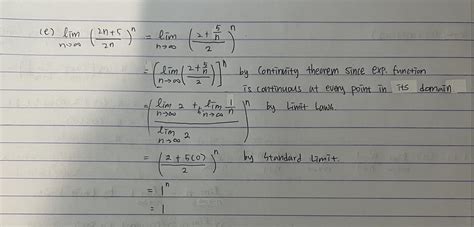 (e) lim n→∞ (2n+5 / 2n)^n = lim n→∞ (2 + 5/n / 2)^n
= [lim n→∞ (2 + 5/n / 2)]^n by Continuity theorem since exp. function
is continuous at every point in its domain
= (lim n→∞ 2 + 5 lim n→∞ 1/n / lim n→∞ 2)^n by Limit Laws.
= (2 + 5(0) / 2)^n by Standard Limit.
= 1^n
= 1